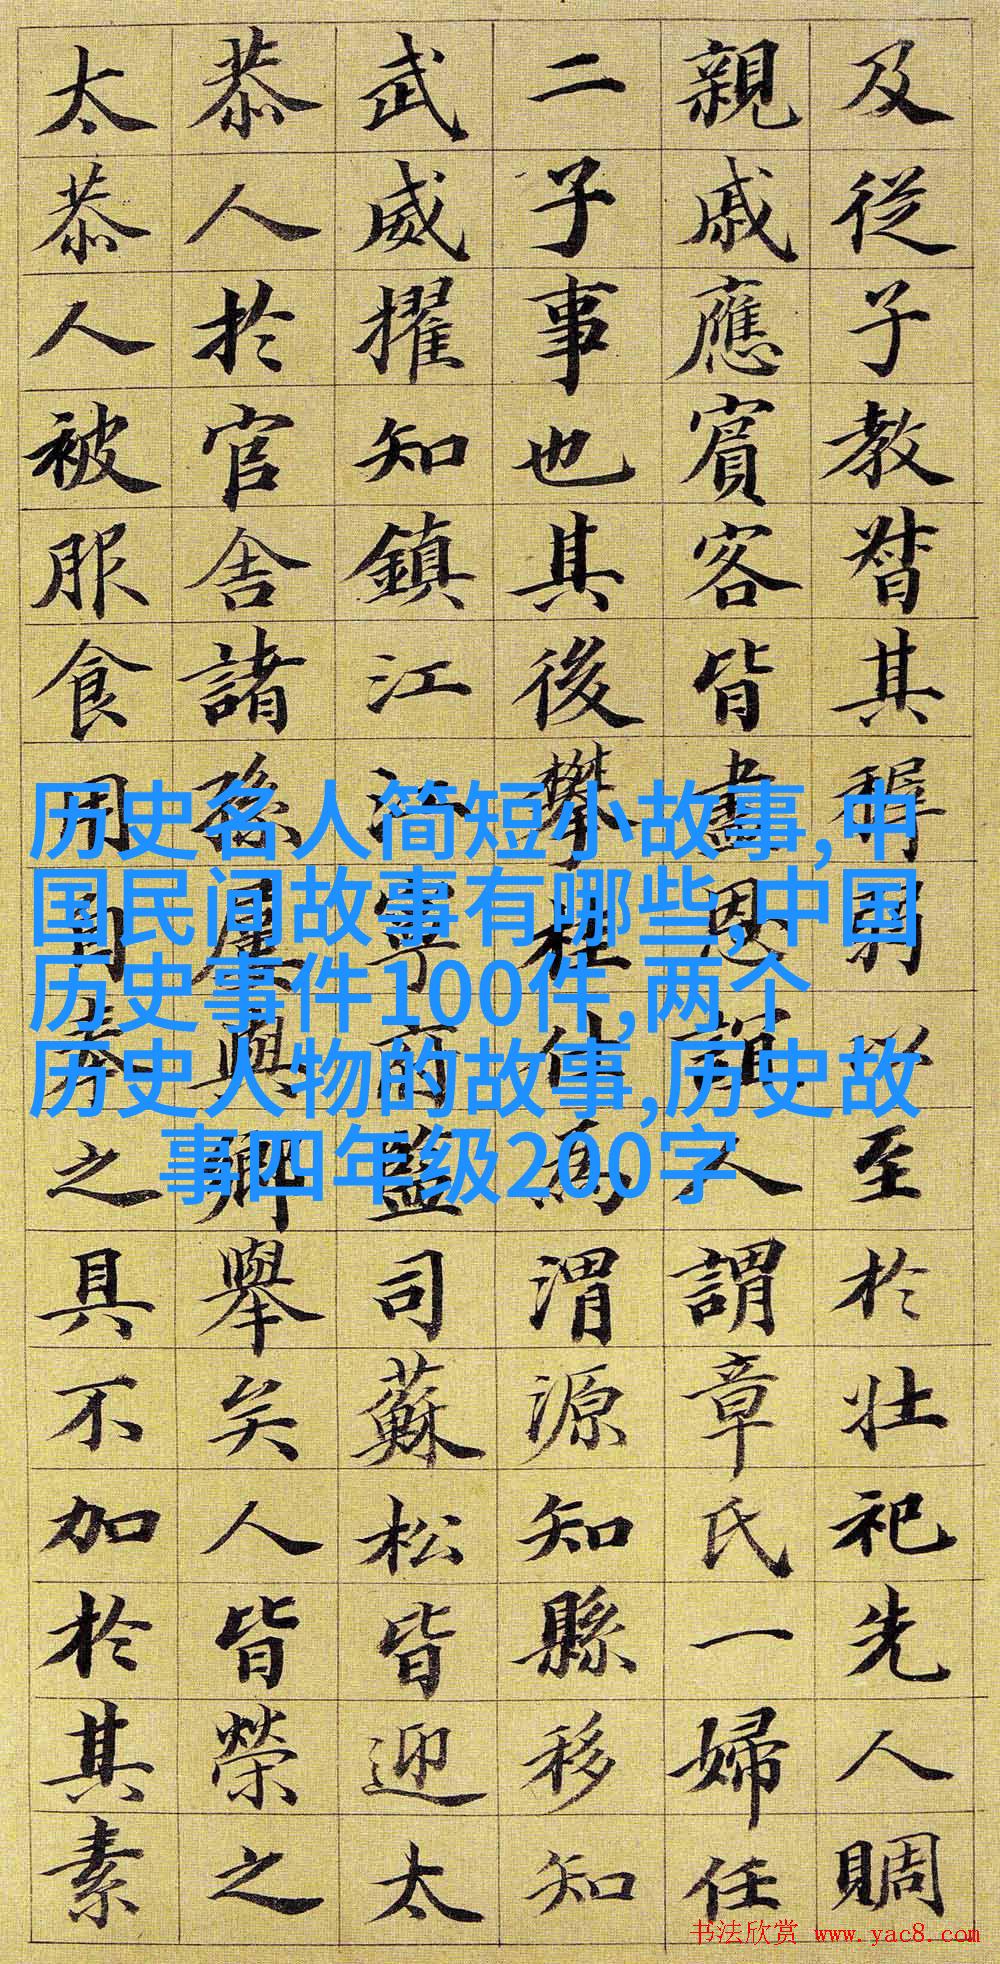 及從子教督其稺弱以至於壯祀先人賙
親戚應賓客皆盡恩誼人謂章氏一婦任
二子事也其後攀桂仕為渭源知縣移知
武威擢知鎮江江寧兩監司蘇松皆迎太
恭人於官舍諸孫屢與鄉舉矣人皆榮之
太恭人被服食用自奉之具不加於其素
历史名人简短小故事,中
国民间故事有哪些,中国
历史事件100件,两个
历史人物的故事,历史故
事四年级200字
书法欣赏 www.yac8.com